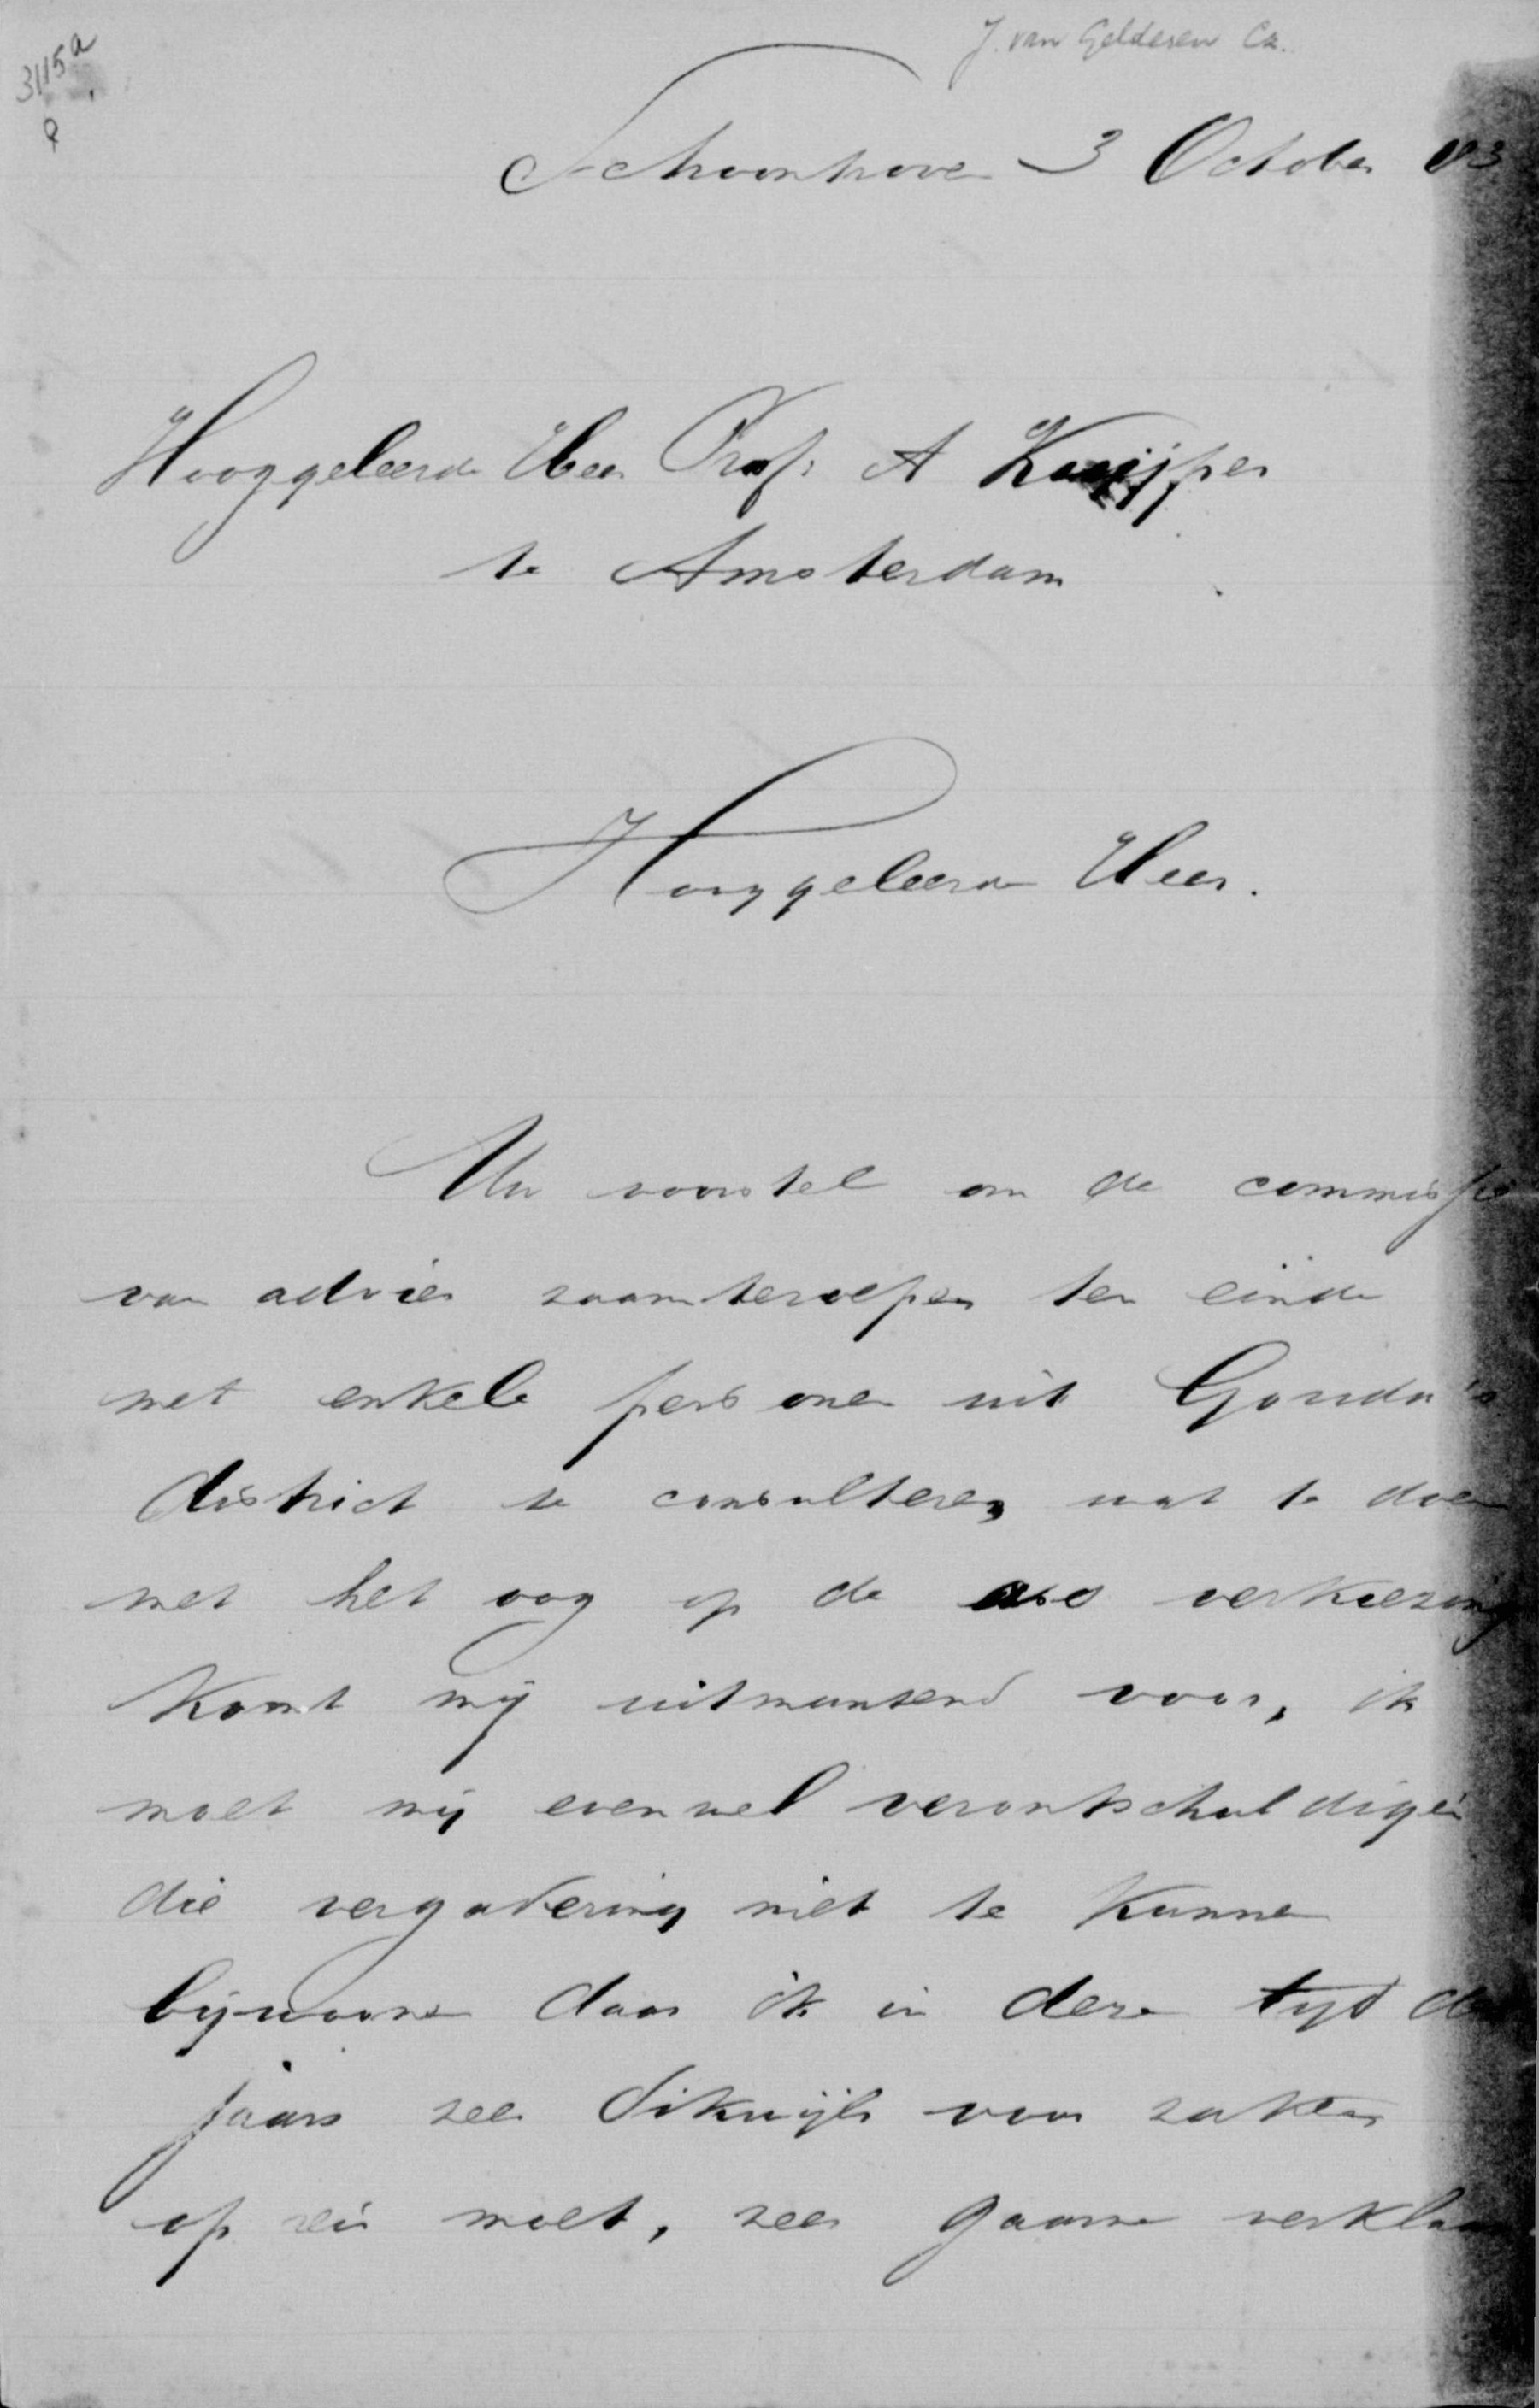 J. van Gelderen Cz.
3115a
Schoonhoven 3 October 83
Hooggeleerde Heer Prof: A Kuijper
te Amsterdam
Hooggeleerde Heer.
Uw voorstel om de commissie
van advies zaamteroepen ten einde
met enkele personen uit Gouda's
district te consulteren wat te doen
met het oog op de verkiezing
komt mij uitmuntend voor, ik
moet mij evenwel verontschuldigen
die vergadering niet te kunnen
bijwoonen daar ik in deze tijd des
jaars zeer dikwijls voor zaken
op reis moet, zeer gaarne verklaar